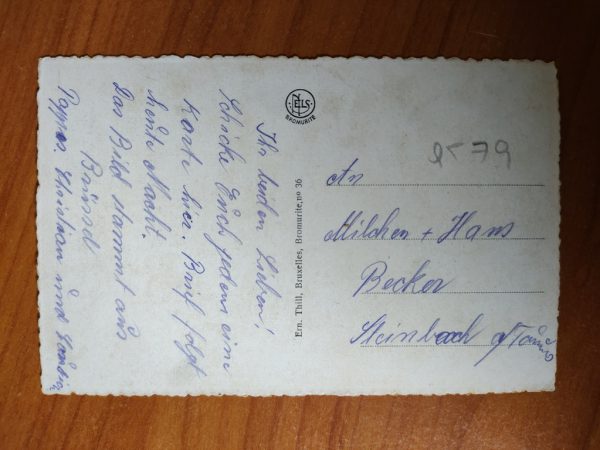 Ihr beiden Lieben!
Schicke Euch jedem eine
Karte hier. Brief folgt
heute Nacht.
Das Bild stammt aus
Brüssel
Pappos. Christian und
NELS
BROMURITE
Ern. Thill, Bruxelles, Bromurite, no 36
An
Milchen + Hans
Becker
Steinbach a/Taunus